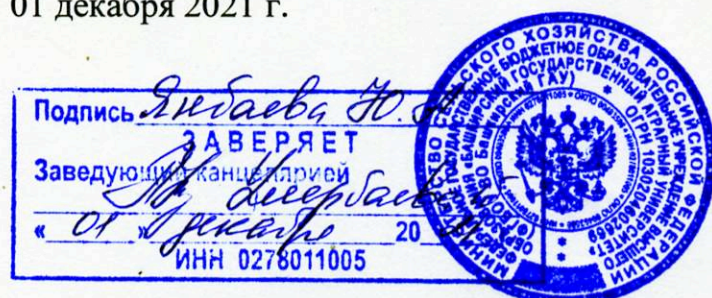 01 декабря 2021 г.
Подпись Янбаева Ю.
ЗАВЕРЯЕТ
Заведующий канцелярией
« 01 » декабря 20
ИНН 0278011005
МИНИСТЕРСТВО СЕЛЬСКОГО ХОЗЯЙСТВА РОССИЙСКОЙ ФЕДЕРАЦИИ
ФЕДЕРАЛЬНОЕ ГОСУДАРСТВЕННОЕ БЮДЖЕТНОЕ ОБРАЗОВАТЕЛЬНОЕ УЧРЕЖДЕНИЕ ВЫСШЕГО
ОБРАЗОВАНИЯ «БАШКИРСКИЙ ГОСУДАРСТВЕННЫЙ АГРАРНЫЙ УНИВЕРСИТЕТ»
(ФГБОУ ВО Башкирский ГАУ)
ОГРН 1030204602669